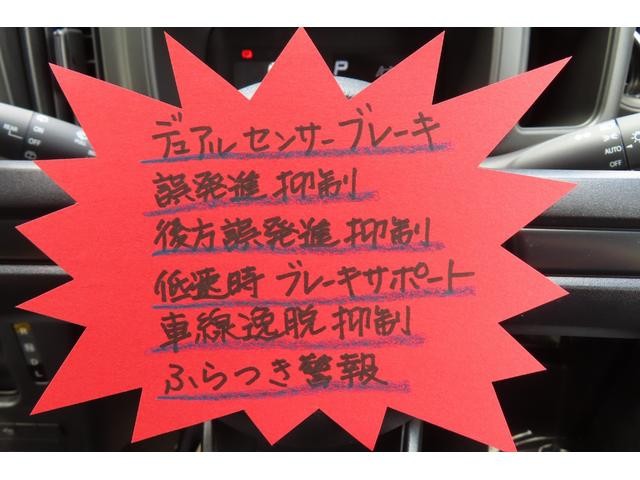 P
REAR
ON
OFF
AUTO
OFF
デュアルセンサーブレーキ
誤発進抑制
後方誤発進抑制
低速時 ブレーキサポート
車線逸脱抑制
ふらつき警報
R
N
D